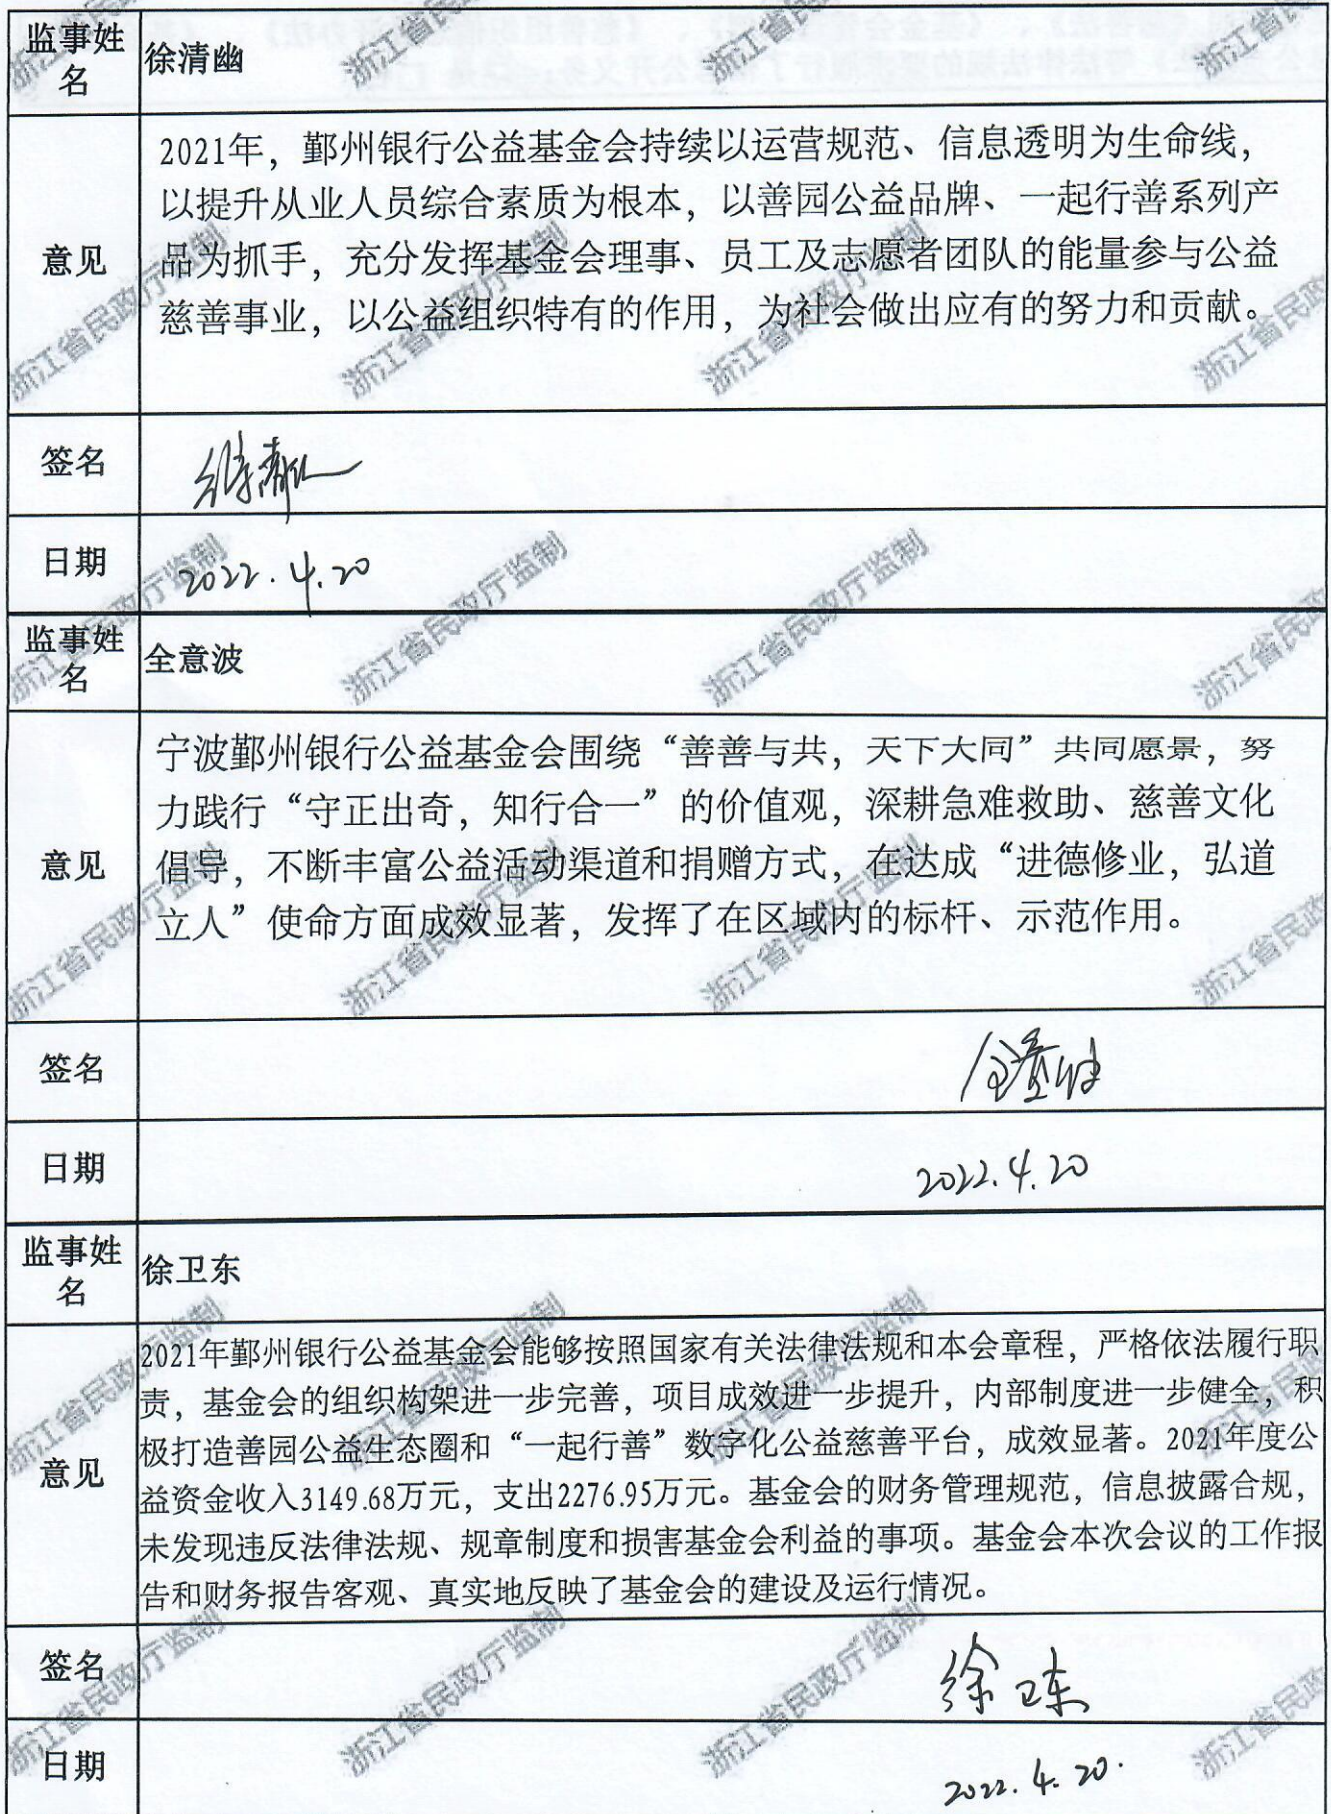 监事姓名
徐清幽
意见
2021年，鄞州银行公益基金会持续以运营规范、信息透明为生命线，
以提升从业人员综合素质为根本，以善园公益品牌、一起行善系列产
品为抓手，充分发挥基金会理事、员工及志愿者团队的能量参与公益
慈善事业，以公益组织特有的作用，为社会做出应有的努力和贡献。
签名
徐清幽
日期
2022.4.20
监事姓名
全意波
意见
宁波鄞州银行公益基金会围绕“善善与共，天下大同”共同愿景，努
力践行“守正出奇，知行合一”的价值观，深耕急难救助、慈善文化
倡导，不断丰富公益活动渠道和捐赠方式，在达成“进德修业，弘道
立人”使命方面成效显著，发挥了在区域内的标杆、示范作用。
签名
全意波
日期
2022.4.20
监事姓名
徐卫东
意见
2021年鄞州银行公益基金会能够按照国家有关法律法规和本会章程，严格依法履行职
责，基金会的组织构架进一步完善，项目成效进一步提升，内部制度进一步健全，积
极打造善园公益生态圈和“一起行善”数字化公益慈善平台，成效显著。2021年度公
益资金收入3149.68万元，支出2276.95万元。基金会的财务管理规范，信息披露合规，
未发现违反法律法规、规章制度和损害基金会利益的事项。基金会本次会议的工作报
告和财务报告客观、真实地反映了基金会的建设及运行情况。
签名
徐卫东
日期
2022.4.20.
浙江省民政厅监制